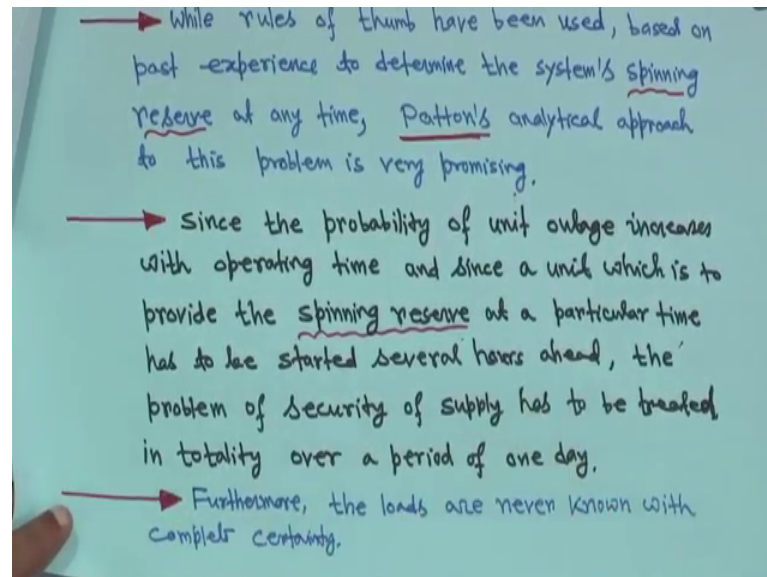 While rules of thumb have been used, based on
past experience to determine the system's spinning
reserve at any time, Patton's analytical approach
to this problem is very promising.
Since the probability of unit outage increases
with operating time and since a unit which is to
provide the spinning reserve at a particular time
has to be started several hours ahead, the
problem of security of supply has to be treated
in totality over a period of one day.
Furthermore, the loads are never known with
complete certainty.